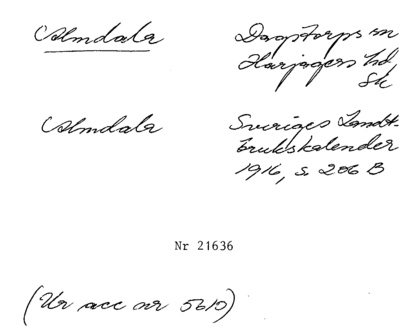 Almdala
Dagstorps sn
Harjagers hd,
Sk
Almdala
Sveriges Landt-
brukskalender
1916, s. 206 B
Nr 21636
(Ur acc nr 5610)